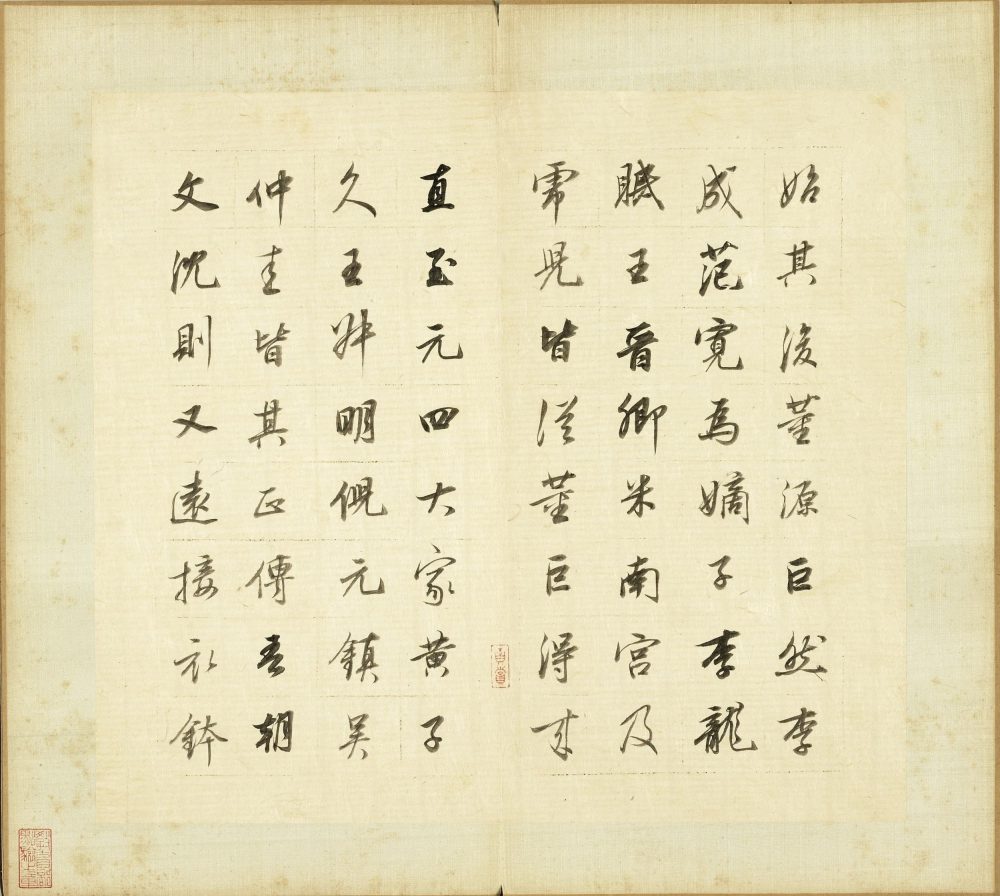 始其後董源巨然李
成范寬為嫡子李龍
眠王晉卿米南宮及
虎兒皆從董巨得來
直至元四大家黃子
久王叔明倪元鎮吳
仲圭皆其正傳吾朝
文沈則又遠接衣鉢